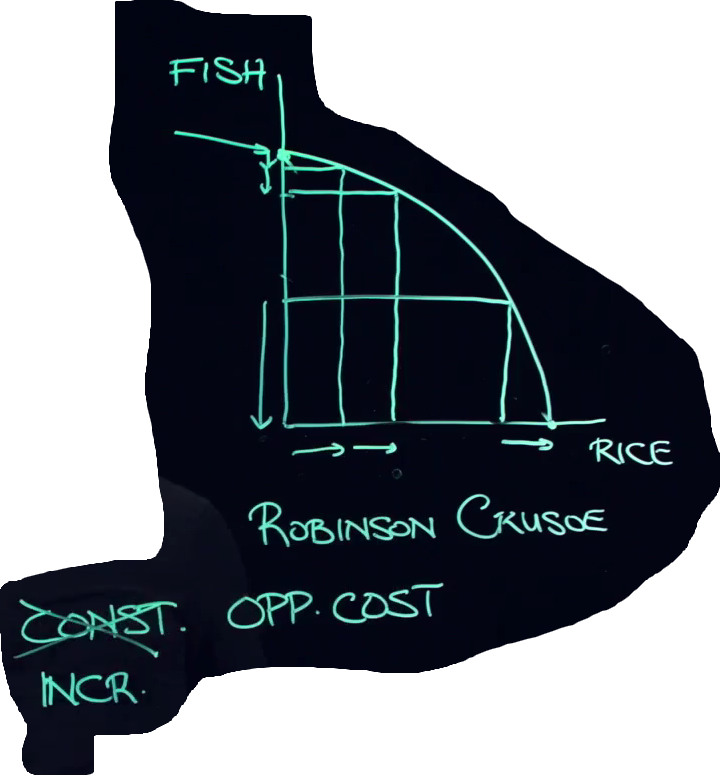 FISH
RICE
ROBINSON CRUSOE
CONST. OPP. COST
INCR.